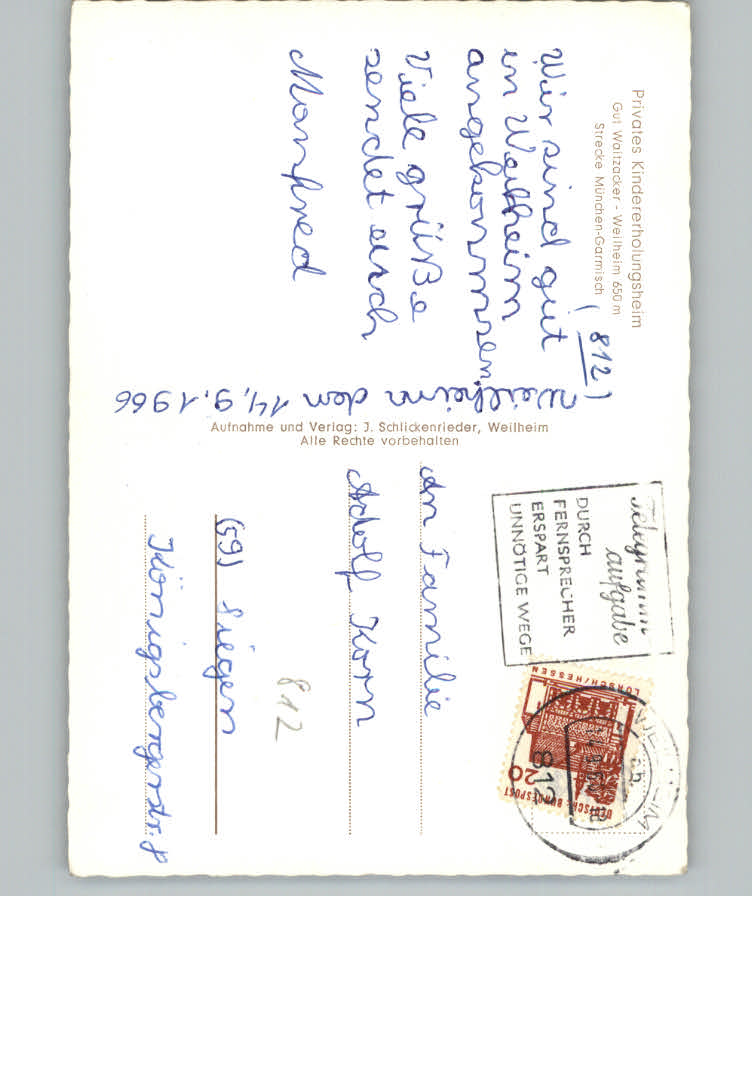 Privates Kindererholungsheim
Gut Waitzacker - Weilheim 650 m
Strecke München-Garmisch
(812)
Weilheim den 14.9.1966
Wir sind gut
in Weilheim
angekommen
Viele grüße
sendet euch
Manfred
Aufnahme und Verlag: J. Schlickenrieder, Weilheim
Alle Rechte vorbehalten
Telegramm
aufgabe
DURCH
FERNSPRECHER
ERSPART
UNNÖTIGE WEGE
LORSCH/HESSEN
20
DEUTSCHE BUNDESPOST
WEILHEIM
812
An Familie
Adolf Korn
812
(59) Siegen
Königsbergerstr. 8